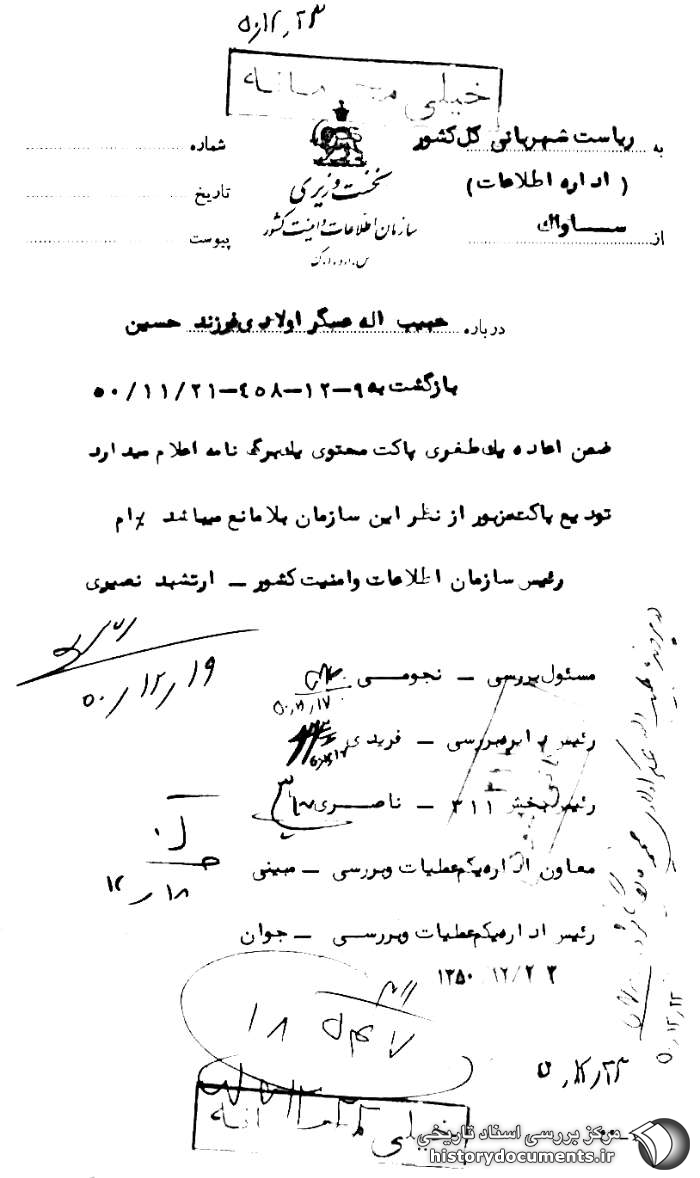 ۵۰،۱۲،۲۳
خیلی محرمانه
به ریاست شهربانی کل کشور
(اداره اطلاعات)
از ساواک
نخست وزیری
سازمان اطلاعات و امنیت کشور
س.ا.و.ا.ک
شماره
تاریخ
پیوست
درباره حبیب اله عسگر اولادی فرزند حسین
بازگشت به ۹-۱۲-۴۵۸-۵۰/۱۱/۲۱
ضمن اعاده یک طغری پاکت محتوی یک برگ نامه اعلام میدارد
توزیع پاکت مزبور از نظر این سازمان بلامانع میباشد
رئیس سازمان اطلاعات و امنیت کشور - ارتشبد نصیری
۵۰،۱۲،۱۹
مسئول بررسی - نجومی
رئیس دایره بررسی - فریدی
رئیس بخش ۳۱۱ - ناصری
معاون اداره یکم عملیات و بررسی - مبینی
۱۲،۱۸
رئیس اداره یکم عملیات و بررسی - جوان
۱۳۵۰/۱۲/۲۳
۵۰،۱۲،۲۳
۵۰،۱۲،۲۳
خیلی محرمانه
مرکز بررسی اسناد تاریخی
historydocuments.ir